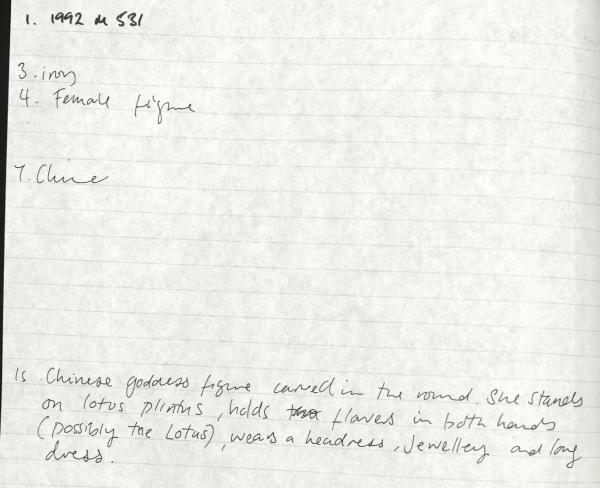 1. 1992 M 531
3. iron
4. Female figure
7. Chine
15 Chinese goddess figure carved in the round. She stands
on lotus plinths, holds flowers in both hands
(possibly the Lotus), wears a headress, jewellery and long
dress.